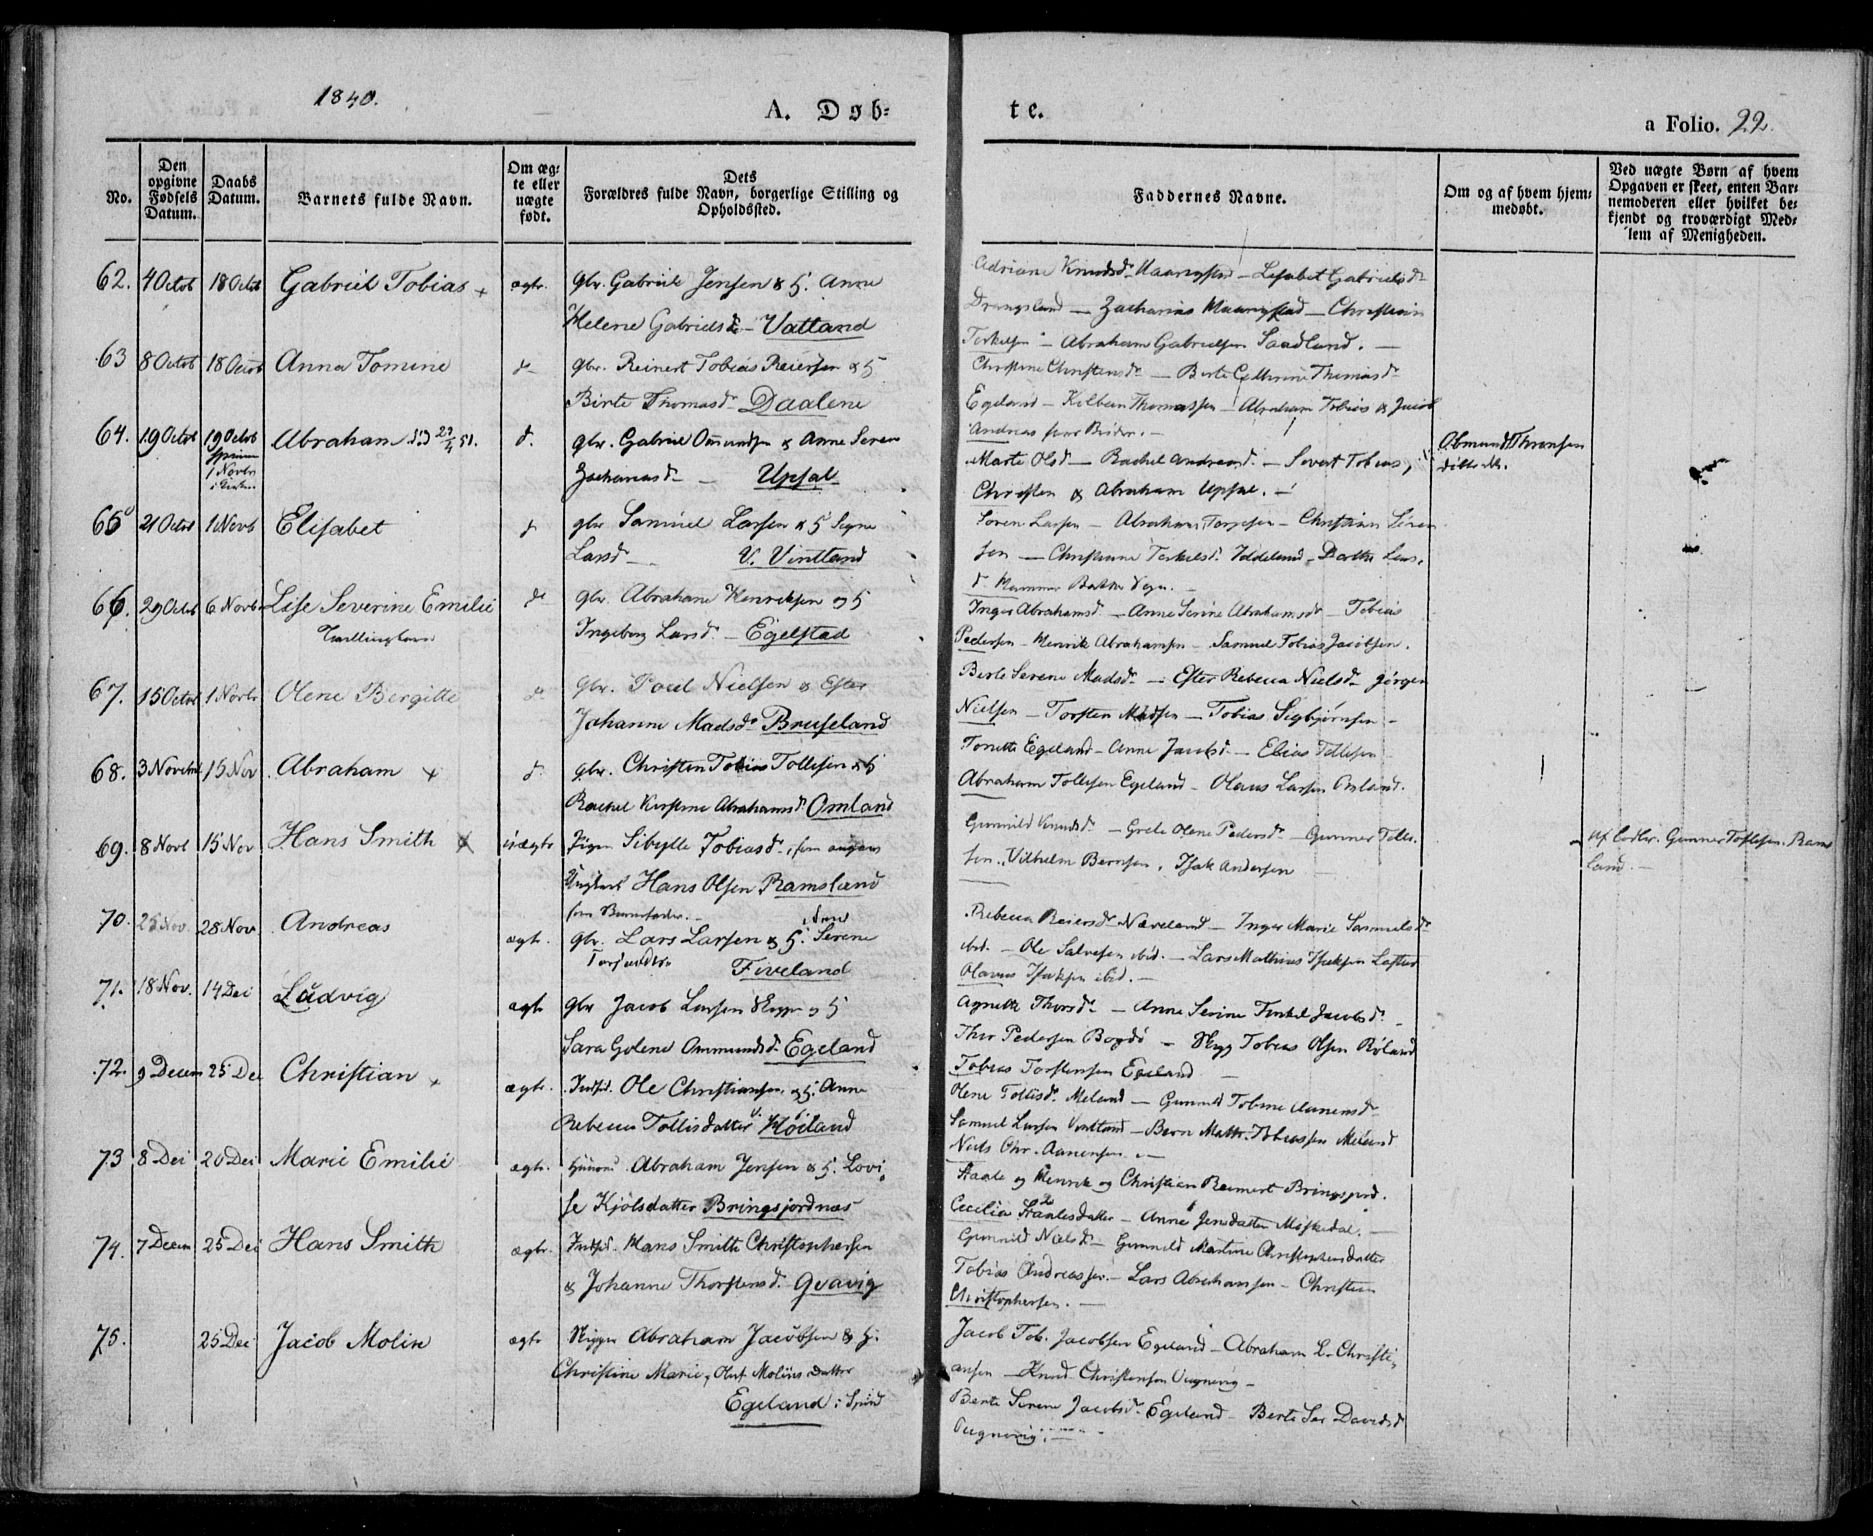 1840.
A. Døb-
te.
a Folio. 22.
No.
Den opgivne Fødsels Datum.
Daabs Datum.
Barnets fulde Navn.
Om æg-
te eller
uægte
født.
Dets
Forældres fulde Navn, borgerlige Stilling og
Opholdssted.
Faddernes Navne.
Om og af hvem hjem-
medøbt.
Ved uægte Børn af hvem
Opgaven er skeet, enten Bar-
nemoderen eller hvilket be-
kjendt og troværdigt Med-
lem af Menigheden.
62. 4 Octob 18 Octob Gabriel Tobias + ægte. gbr. Gabriel Jensen & H. Anne
Helene Gabrielsd. – Vatland
Lisabet Gabrielsd.
Drangsland — Zacharias — Christian
Terkelsen – Abraham Gabrielsen Saadland. —
63 8 Octob 18 Octob Anna Tomine d– gbr. Reinert Tobias Reiersen & H
Birte Thomasd. Daalene
Christine Christensd. — Berte Cathrine Thomasd.
Egeland – Kolben Thomassen – Abraham Tobias & Jacob
Andreas
64. 19 Octob 19 Octob 1 Novbr Abraham d. gbr. Gabriel Ommundsen & Anne Seren
Zachariasd. — Upsal
Marte Olsd – Rachel Andreasd. – Sivert Tobias,
Christen & Abraham Upsal. –
65 21 Octob 1 Novb Elisabet d gbr Samuel Larsen & H Signe
Larsd. – V. Vintland
Søren Larsen – Abraham – Christian Søren
sen — Christine Terkelsd.
66. 29 Octob 6 Novb Lise Severine Emilie d gbr. Abraham Henriksen og H
Tvillingbarn
Ingeborg Larsd. – Egelstad
Inger Abrahamsd. – Anne Serine Abrahamsd. – Tobias
Pedersen – Henrik Abrahamsen – Samuel Tobias Jacobsen.
67. 15 Octob 1 Novbr Olene Bergitte d. gbr. Poul Nielsen & Ester
Johanne Madsd. Bruseland
Berte Serene Madsd. – Ester Rebecca Nielsd. Jørgen
Nielsen – Torsten Madsen – Tobias Sigbjørnsen –
68. 3 Novemb 15 Nov Abraham + d. gbr. Christen Tobias Tollisen & H
Rachel Kirstine Abrahamsd. Omland
Tonette Egeland – Anne Jacobsd. – Elias Tollisen
Abraham Tollisen Egeland – Olaus Larsen Omland.
69. 8 Novb 15 Nov Hans Smith uægte Pigen Sibylle Tobiasd., som angav
Ungkarl Hans Olsen Ramsland
som Barnefader. –
Gunnild Knudsd. – Grete Olene Pedersd. – Gunner Tolli-
sen, Vilhelm Berntsen, Isak Andersen
Gunner Tollisen Rams
land. –
70. 25 Nov. 28 Nov Andreas ægt. gbr. Lars Larsen & H. Serene
Fiveland
Rebecca Reiersd. Næveland – Inger Marie Samuelsd.
ibid. – Ole Salvesen ibid. – Lars Mathias Isaksen
Olavus Isaksen ibid. –
71. 18 Nov. 14 Dec Ludvig ægt gbr Jacob Larsen og H
Sara Golene Ommundsd. Egeland
Agnethe Thorsd. – Anne Serine Jacobsd.
Thor Pedersen – Tobias Olsen
Tobias Torstensen Egeland
72. 9 Decem 25 Dec Christian + ægt. Indsd. Ole Christiansen og H. Anne
Rebecca Tollisdatter Høiland
Olene Tollisd. Meland — Gunnild Tobine Aanensd.
Samuel Larsen Vintland – Bern Math. Tobiassen Meland
Niels Chr. Aanensen. –
73 8 Dec 20 Dec Marie Emilie ægt. Abraham Jensen & H. Lovi-
se Kjølsdatter Bringsjordnæs
Staale og Henrik og Christian Reinert Bringsjord.
Cecilia Staalesdatter – Anne Jensdatter
74. 7 Decem 25 Dec Hans Smith ægt. Indsd. Hans Smith Christophersen
& Johanne Thorstensd. Gvavig
Gunnild Nielsd. – Gunnild Martine Christophersdatter
Tobias Andreassen. – Lars Abrahamsen – Christian
Christophersen. —
75. 25 Dec Jacob Molin ægt Skipper Abraham Jacobsen & H.
Christine Marie, Oluf Molins Datter
Egeland i Spind
Jacob Tob. Jacobsen Egeland – Abraham L. Christi-
ansen — Knud Christensen
Berte Serene Jacobsd. Egeland – Berte Davidsd.